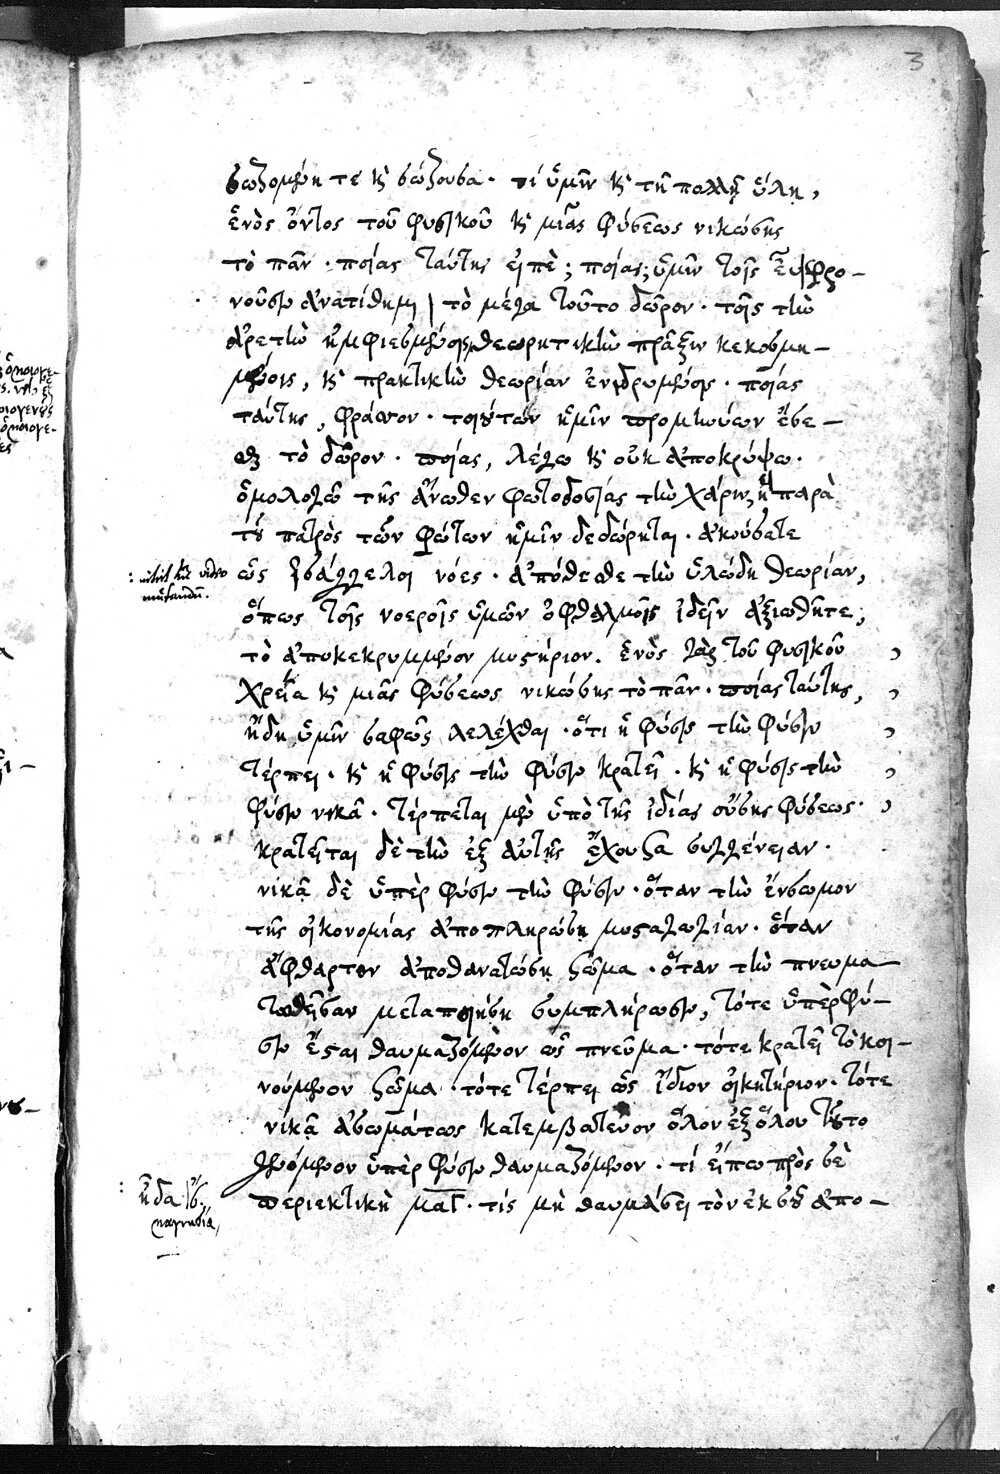 3
σωζομένη τε καὶ σώζουσα· τί ὑμῖν καὶ τῇ πολλῇ ὕλῃ,
ἑνὸς ὄντος τοῦ φυσικοῦ καὶ μιᾶς φύσεως νικώσης
τὸ πᾶν· ποίας ταύτης εἰπὲ; ποίας; ὑμῖν τοῖς εὖ φρο-
νοῦσιν ἀνατίθημι τὸ μέγα τοῦτο δῶρον· τοῖς τὴν
ἀρετὴν ἠμφιεσμένοις, θεωρητικὴν πρᾶξιν κεκοσμη-
μένοις, καὶ πρακτικὴν θεωρίαν ἐνιδρυμένοις· ποίας
ταύτης, φράσον· τοιούτων ἡμῖν προμηνύων ἔσε-
σθαι τὸ δῶρον· ποίας, λέγω καὶ οὐκ ἀποκρύψω·
ὁμολογῶ τῆς ἄνωθεν φωτοδοσίας τὴν χάριν, ἣ παρὰ
τοῦ πατρὸς τῶν φώτων ἡμῖν δεδώρηται· ἀκούσατε
ὡς ἰσάγγελοι νόες· ἀπόθεσθε τὴν ὑλώδη θεωρίαν,
ὅπως τοῖς νοεροῖς ὑμῶν ὀφθαλμοῖς ἰδεῖν ἀξιωθῆτε;
τὸ ἀποκεκρυμμένον μυστήριον. ἑνὸς γὰρ τοῦ φυσικοῦ
χρεία καὶ μιᾶς φύσεως νικώσης τὸ πᾶν· ποίας ταύτης,
ἤδη ὑμῖν σαφῶς λελέχθαι· ὅτι ἡ φύσις τὴν φύσιν
τέρπει· καὶ ἡ φύσις τὴν φύσιν κρατεῖ· καὶ ἡ φύσις τὴν
φύσιν νικᾷ· τέρπεται μὲν ὑπὸ τῆς ἰδίας οὔσης φύσεως·
κρατεῖται δὲ τὴν ἐξ αὐτῆς ἔχουσα συγγένειαν·
νικᾷ δὲ ὑπὲρ φύσιν τὴν φύσιν· ὅταν τὴν ἔνσωμον
τῆς οἰκονομίας ἀποπληρώσῃ μυσταγωγίαν· ὅταν
ἄφθαρτον ἀποθανατώσῃ σῶμα· ὅταν τὴν πνευμα-
τωθεῖσαν μεταποιήσῃ συμπλήρωσιν, τότε ὑπὲρ φύ-
σιν ἔσται θαυμαζόμενον ὡς πνεῦμα· τότε κρατεῖ τὸ κοι-
νούμενον σῶμα· τότε τέρπει ὡς ἴδιον οἰκητήριον· τότε
νικᾷ ἀσωμάτως κατεμβατεῦον ὅλον ἐξ ὅλου τοῦτο
γενόμενον ὑπὲρ φύσιν θαυμαζόμενον· τί εἴπω πρὸς σὲ
περιεκτικὴ μαγ· τίς μὴ θαυμάσει τὸν ἐκ σοῦ ἀπο-
: nihil hic video
mutandum.